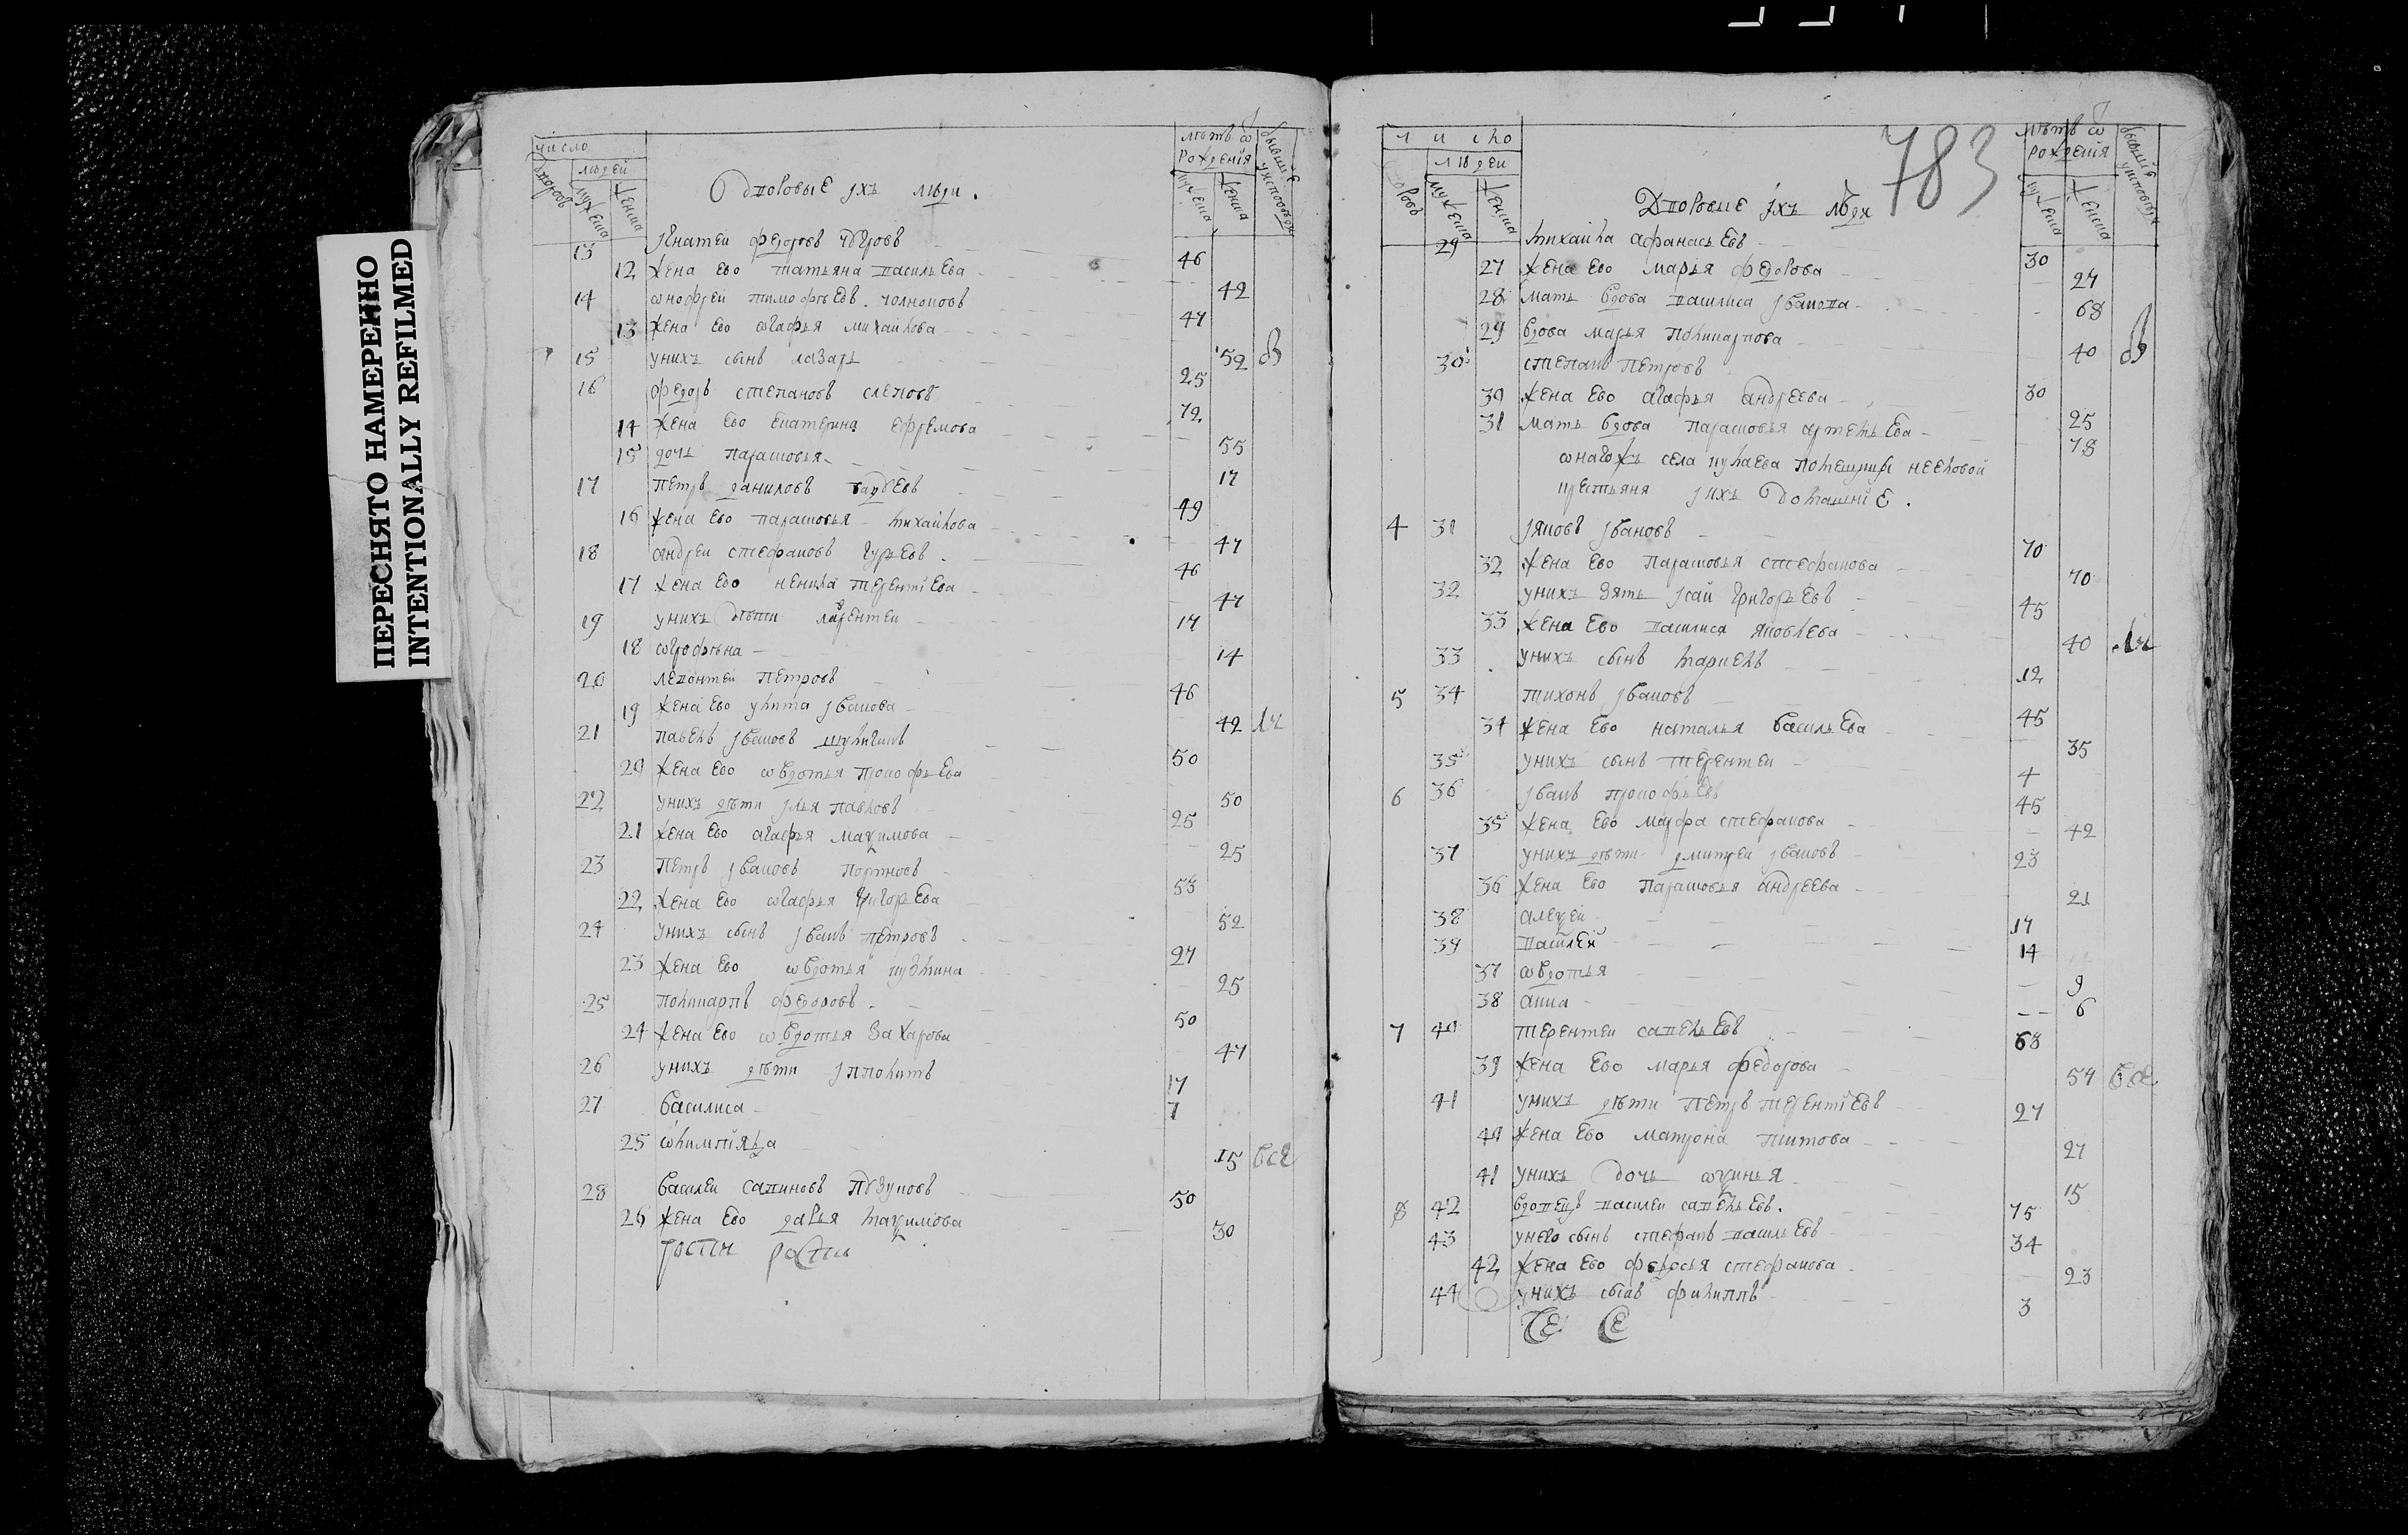 ПЕРЕСНЯТО НАМЕРЕННО
INTENTIONALLY REFILMED
число
людей
дворовъ мужеска женска
Дворовые ихъ люди.
лѣтъ ѿ рожденія
мужеска женска
бывшие у исповеди
13 Игнатеи федоровъ 46
12 жена ево татьяна васильева 42
14 онофреи тимофѣевъ 47
13 жена ево агафья михаилова 52
15 унихъ сынъ лазарь 25
16 федоръ степановъ слеповъ 72
14 жена ево екатерина ефремова 55
15 дочь парасковья 17
17 петръ даниловъ 49
16 жена ево парасковья михаилова 47
18 андреи стефановъ гурьевъ 46
17 жена ево терентіева 47
19 унихъ дѣти лаврентеи 17
18 огрофѣна 14
20 левонтеи петровъ 46
19 жена ево улита иванова 42
21 павелъ ивановъ шулигинъ 50
20 жена ево овдотья прокофьева 50
22 унихъ дѣти илья павловъ 25
21 жена ево агафья маѯимова 25
23 петръ ивановъ портновъ 53
22 жена ево огафья григорьева 52
24 унихъ сынъ иванъ петровъ 27
23 жена ево овдотья кузмина 25
25 поликарпъ федоровъ 50
24 жена ево овдотья захарова 47
26 унихъ дѣти ипполитъ 17
27 василиса 7
25 олимпіяда 15 все
28 василеи савиновъ пузуновъ 50
26 жена ево дарья маѯимова 30
783
число
людей
дворовъ мужеска женска
Дворовые ихъ люди
лѣтъ ѿ рожденія
мужеска женска
бывшие у исповеди
29 михаила афанасьевъ 30
27 жена ево марья федорова 27
28 мать вдова василиса иванова 68
29 вдова марья поликарпова 40
30 степанъ петровъ 30
30 жена ево агафья андреева 25
31 мать вдова парасковья артемьева 78
онагожъ села пулаева помещицы нееловой
крестьяня ихъ домашніе.
4 31 яковъ ивановъ 70
32 жена ево парасковья стефанова 70
32 унихъ зять исаи григорьевъ 45
33 жена ево василиса яковлева 40
33 унихъ сынъ маркелъ 12
5 34 тихонъ ивановъ 45
34 жена ево наталья васильева 35
35 унихъ сынъ терентеи 4
6 36 иванъ прокофьевъ 45
35 жена ево марфа стефанова 42
37 унихъ дѣти дмитреи ивановъ 23
36 жена ево парасковья андреева 21
38 алеѯеи 17
39 василей 14
37 овдотья 9
38 анна 6
7 40 терентеи савельевъ 68
39 жена ево марья федорова 54 все
41 унихъ дѣти петръ терентіевъ 27
40 жена ево матрона титова 27
41 унихъ дочь оѯинья 15
8 42 вдовецъ василеи савельевъ. 75
43 унево сынъ стефанъ васильевъ 34
42 жена ево федосья стефанова 23
44 унихъ сынъ филиппъ 3